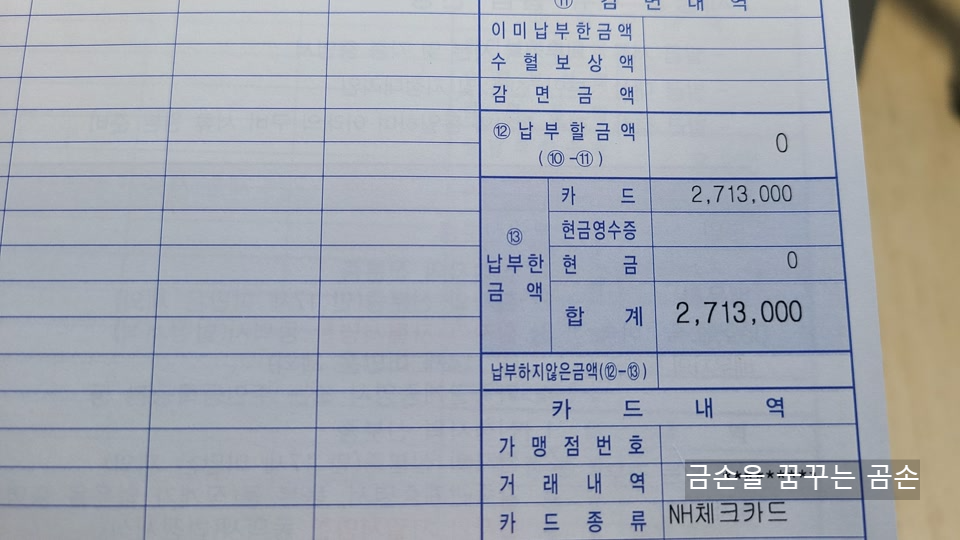 ⑪ 감 면 내 역
이미납부한금액
수 혈 보 상 액
감 면 금 액
⑫ 납 부 할 금 액 0
(⑩-⑪)
카 드 2,713,000
현금영수증
⑬ 납부한 금 액
현 금 0
합 계 2,713,000
납부하지않은금액(⑫-⑬)
카 드 내 역
가 맹 점 번 호
거 래 내 역
금손을 꿈꾸는 곰손
카 드 종 류 NH체크카드